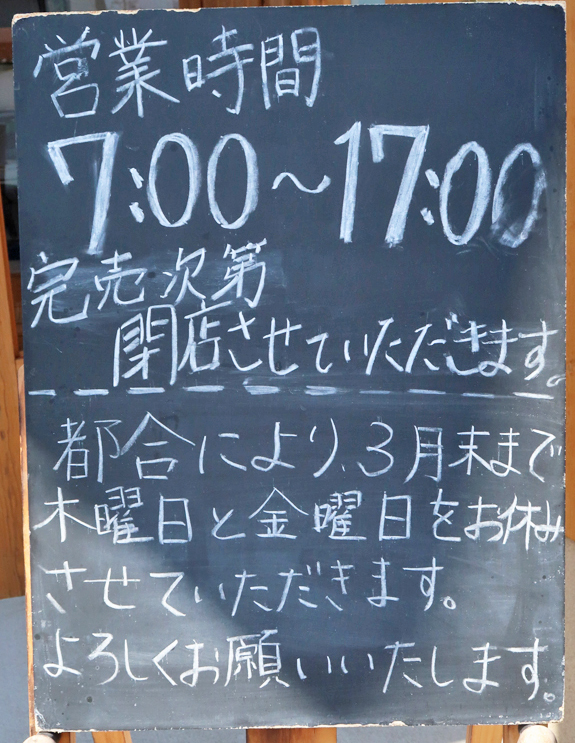 営業時間
7:00～17:00
完売次第
閉店させていただきます。
都合により、3月末まで
木曜日と金曜日をお休み
させていただきます。
よろしくお願いいたします。